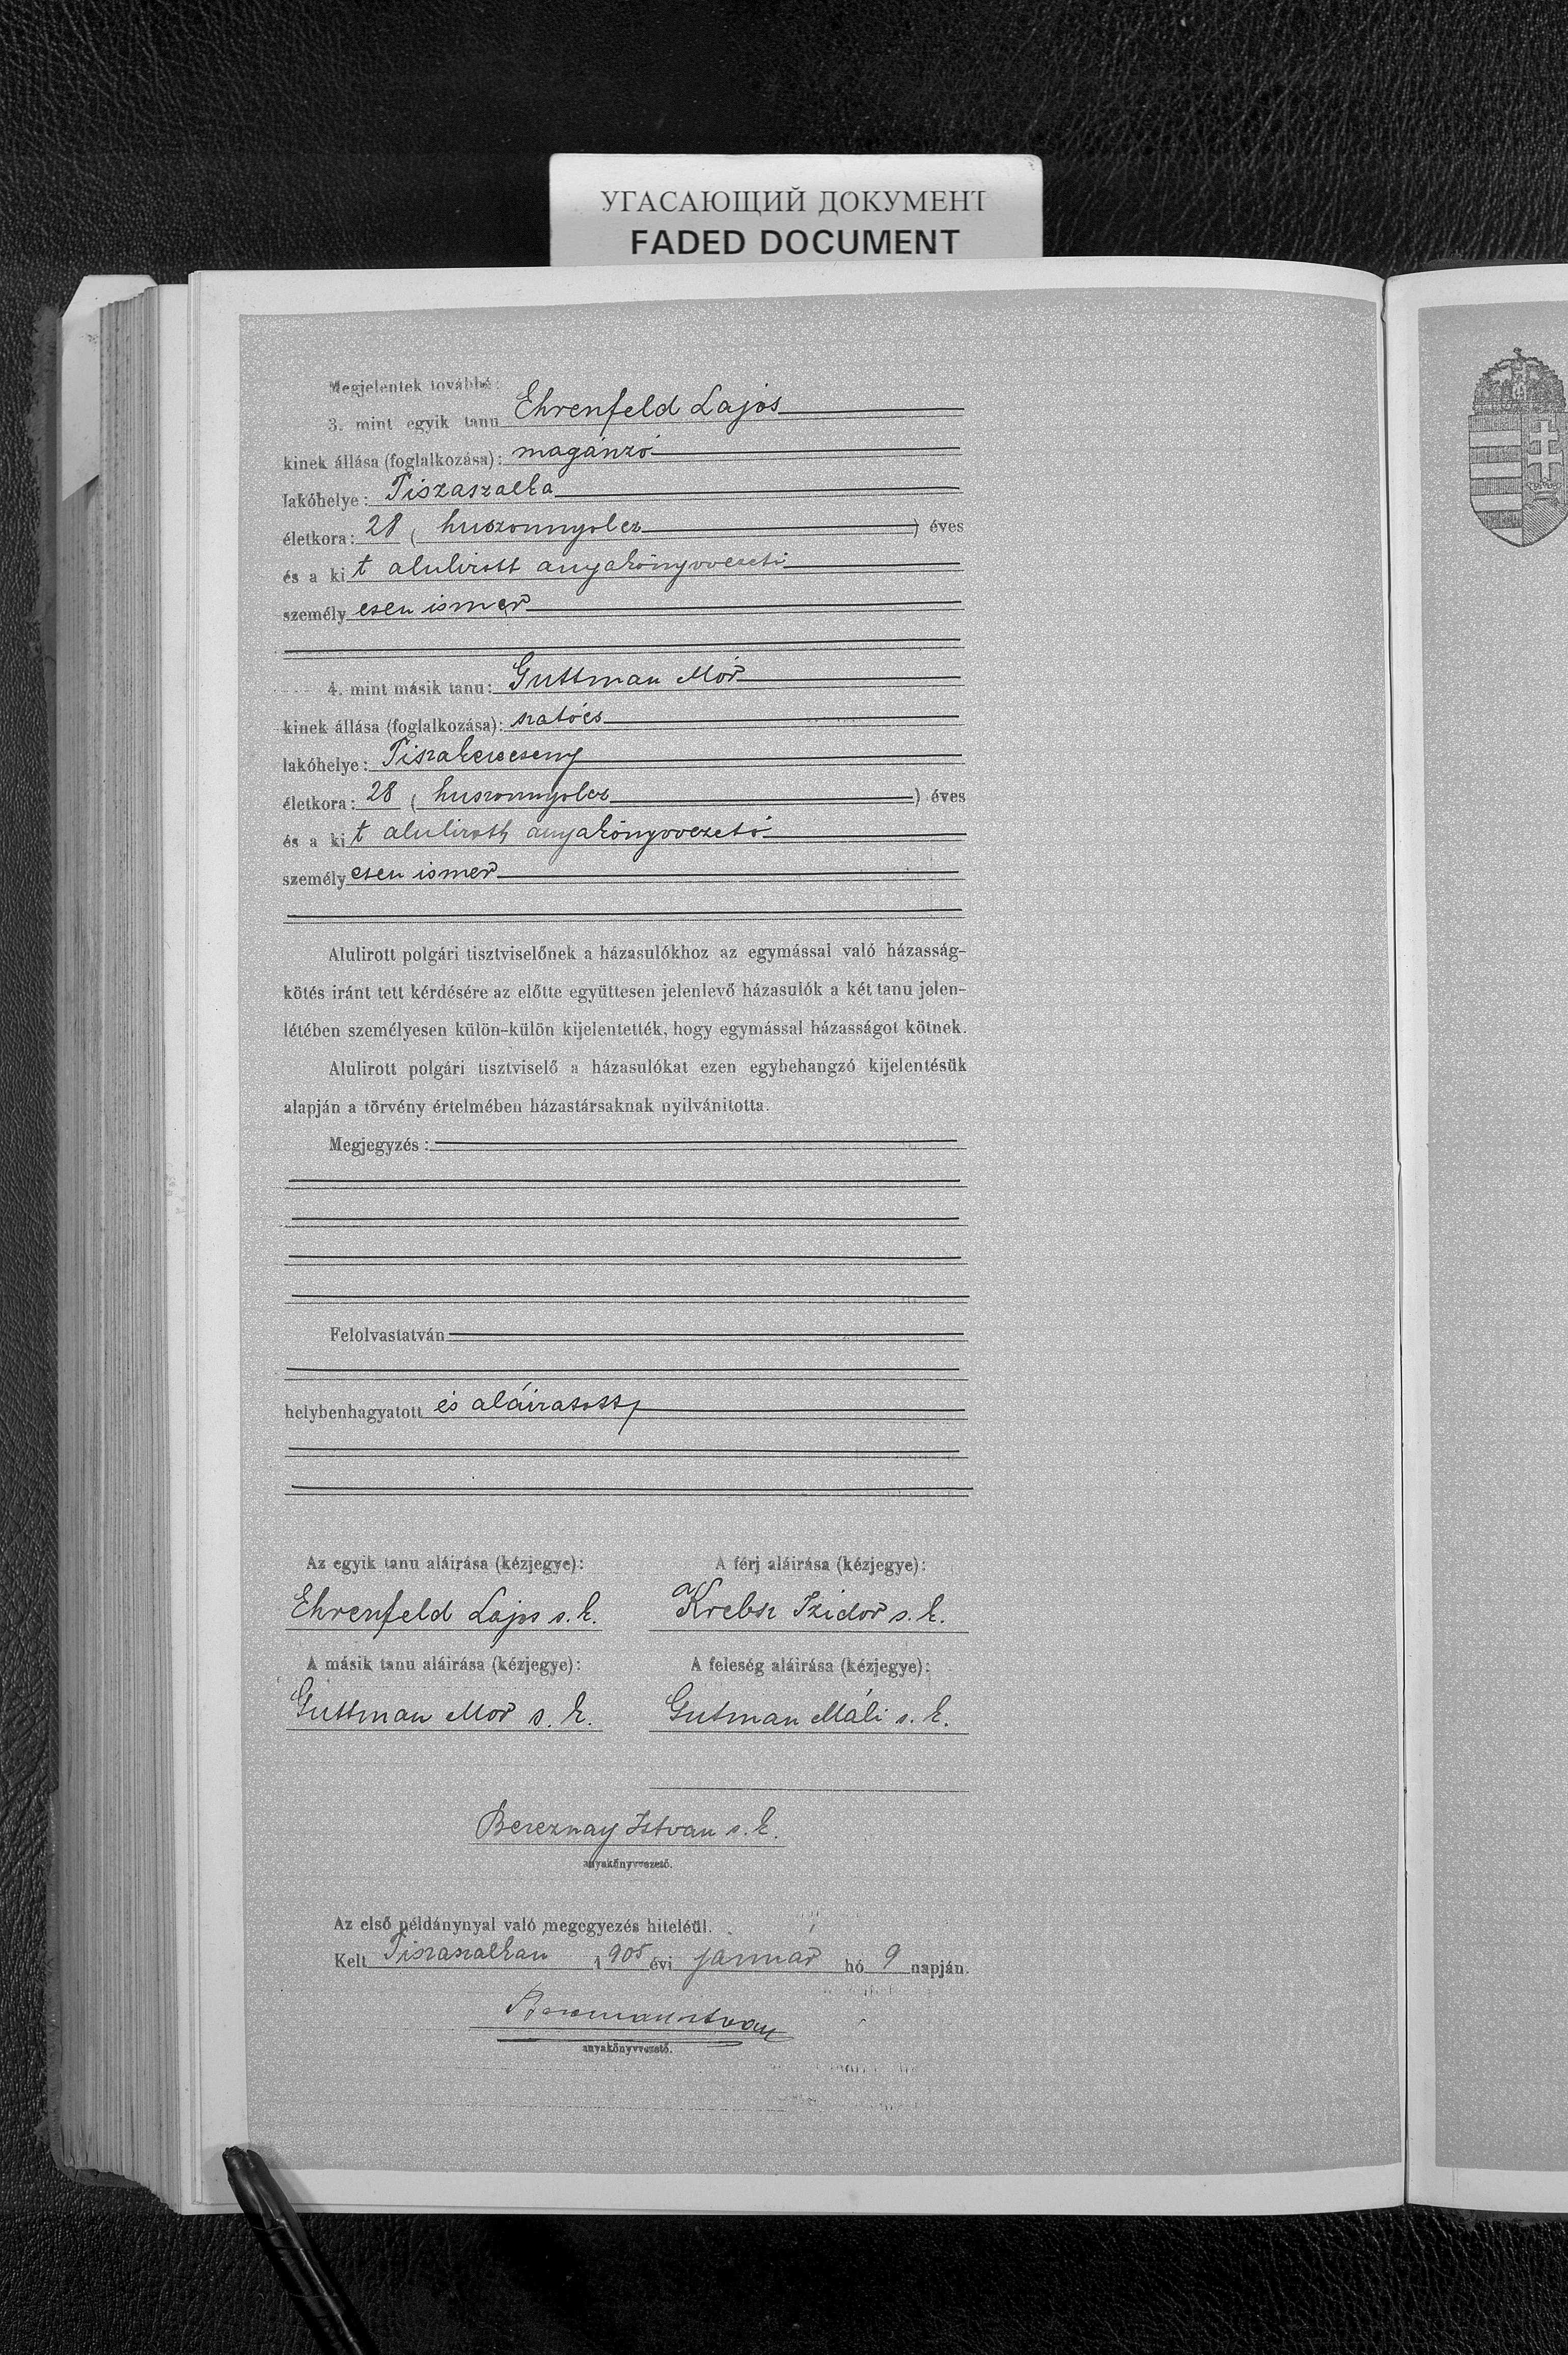 УГАСАЮЩИЙ ДОКУМЕНТ
FADED DOCUMENT
Megjelentek továbbá:
3. mint egyik tanu Ehrenfeld Lajos
kinek állása (foglalkozása): magánzó
lakóhelye: Tiszaszalka
életkora: 28 ( huszonnyolcz ) éves
és a ki t alulirott anyakönyvvezető
személy esen ismer
4. mint másik tanu: Guttman Mór
kinek állása (foglalkozása): szatócs
lakóhelye: Tiszakerecseny
életkora: 28 ( huszonnyolcz ) éves
és a ki t alulirott anyakönyvvezető
személy esen ismer
Alulirott polgári tisztviselőnek a házasulókhoz az egymással való házasság-
kötés iránt tett kérdésére az előtte együttesen jelenlevő házasulók a két tanu jelen-
létében személyesen külön-külön kijelentették, hogy egymással házasságot kötnek.
Alulirott polgári tisztviselő a házasulókat ezen egybehangzó kijelentésük
alapján a törvény értelmében házastársaknak nyilvánitotta.
Megjegyzés:
Felolvastatván
helybenhagyatott és aláiratott
Az egyik tanu aláirása (kézjegye): A férj aláirása (kézjegye):
Ehrenfeld Lajos s. k. Krebsz Izidor s. k.
A másik tanu aláirása (kézjegye): A feleség aláirása (kézjegye):
Guttman Mor s. k. Gutman Máli s. k.
Bereznay Istvan s. k.
anyakönyvvezető.
Az első példánynyal való megegyezés hiteléül.
Kelt Tiszaszalkan 1905 évi januar hó 9 napján.
anyakönyvvezető.